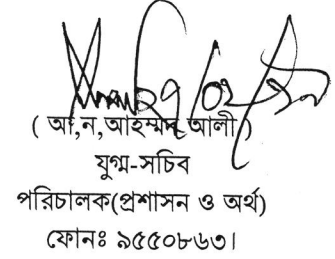 ( আ,ন,আহম্মদ আলী )
যুগ্ম-সচিব
পরিচালক(প্রশাসন ও অর্থ)
ফোনঃ ৯৫৫০৮৬৩।